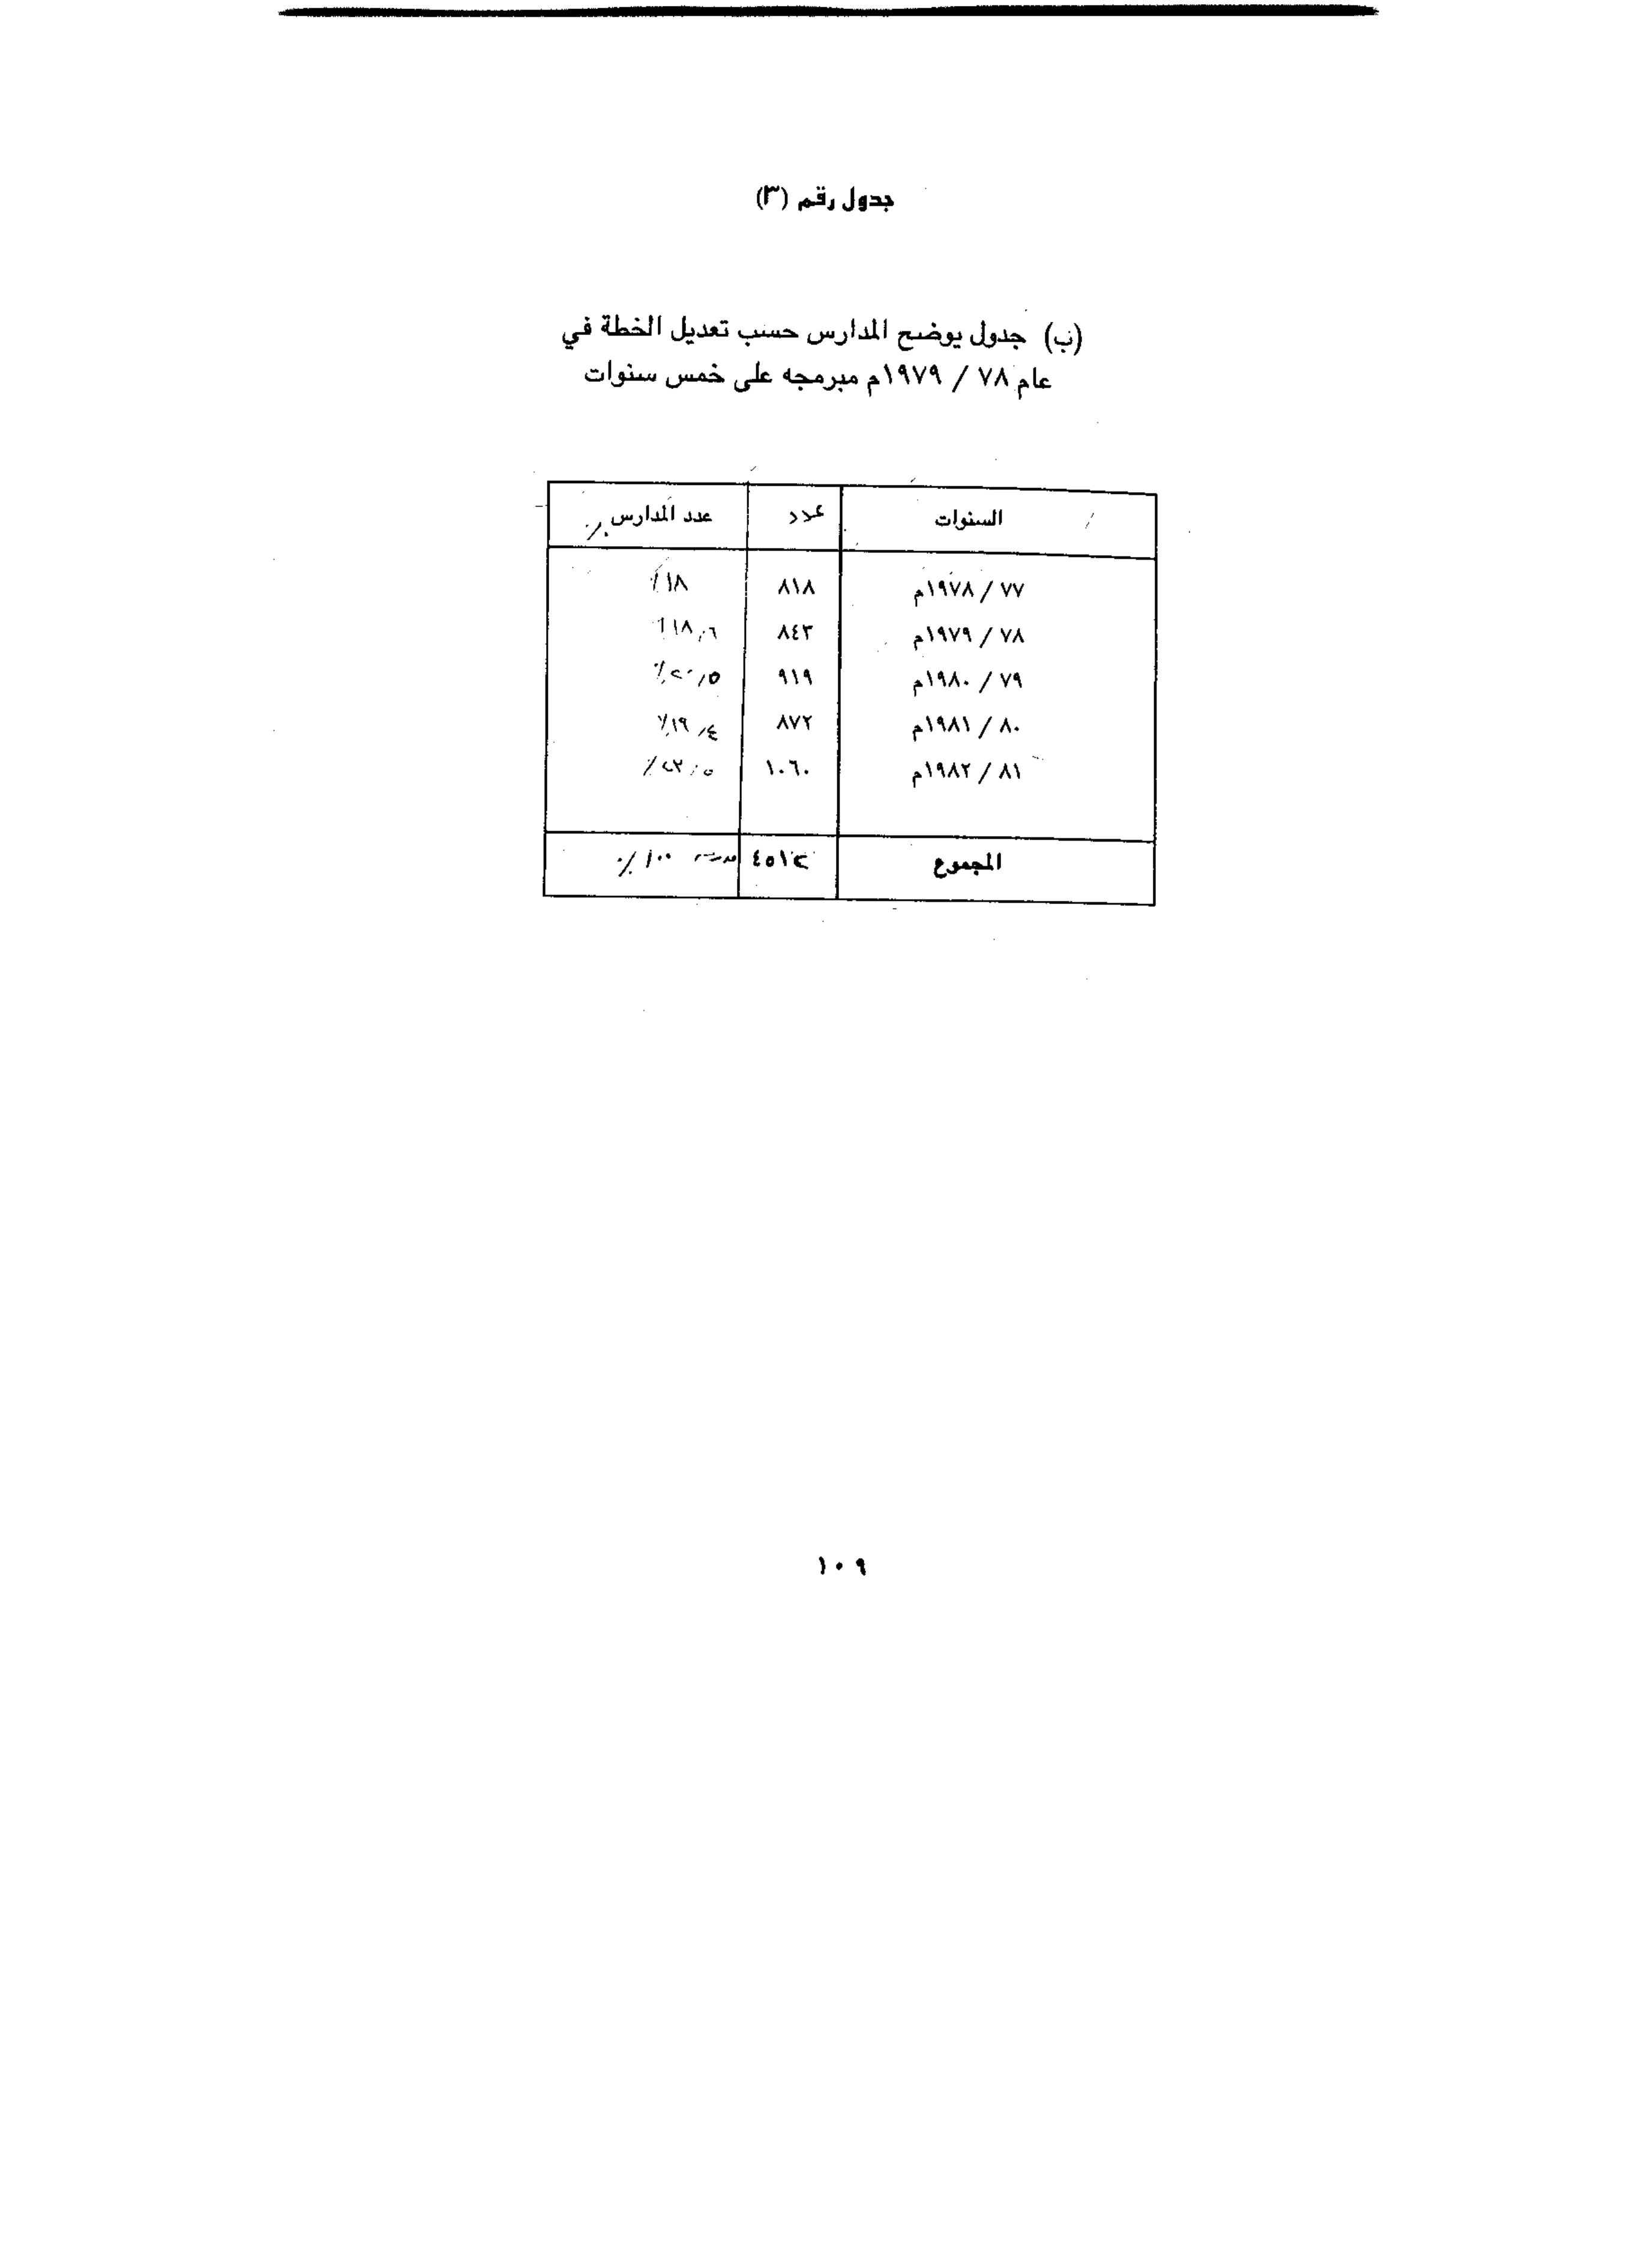 جدول رقم (٣)
(ب) جدول يوضح المدارس حسب تعديل الخطة في
عام ٧٨ / ١٩٧٩م مبرمجه على خمس سنوات
السنوات عدد عدد المدارس ٪
٧٧ / ١٩٧٨م ٨١٨ ١٨٪
٧٨ / ١٩٧٩م ٨٤٣ ١٨,٦٪
٧٩ / ١٩٨٠م ٩١٩ ٢٠,٥٪
٨٠ / ١٩٨١م ٨٧٢ ١٩,٤٪
٨١ / ١٩٨٢م ١٠٦٠ ٢٣,٥٪
المجموع ٤٥١٢ مدرسة ١٠٠٪
١٠٩